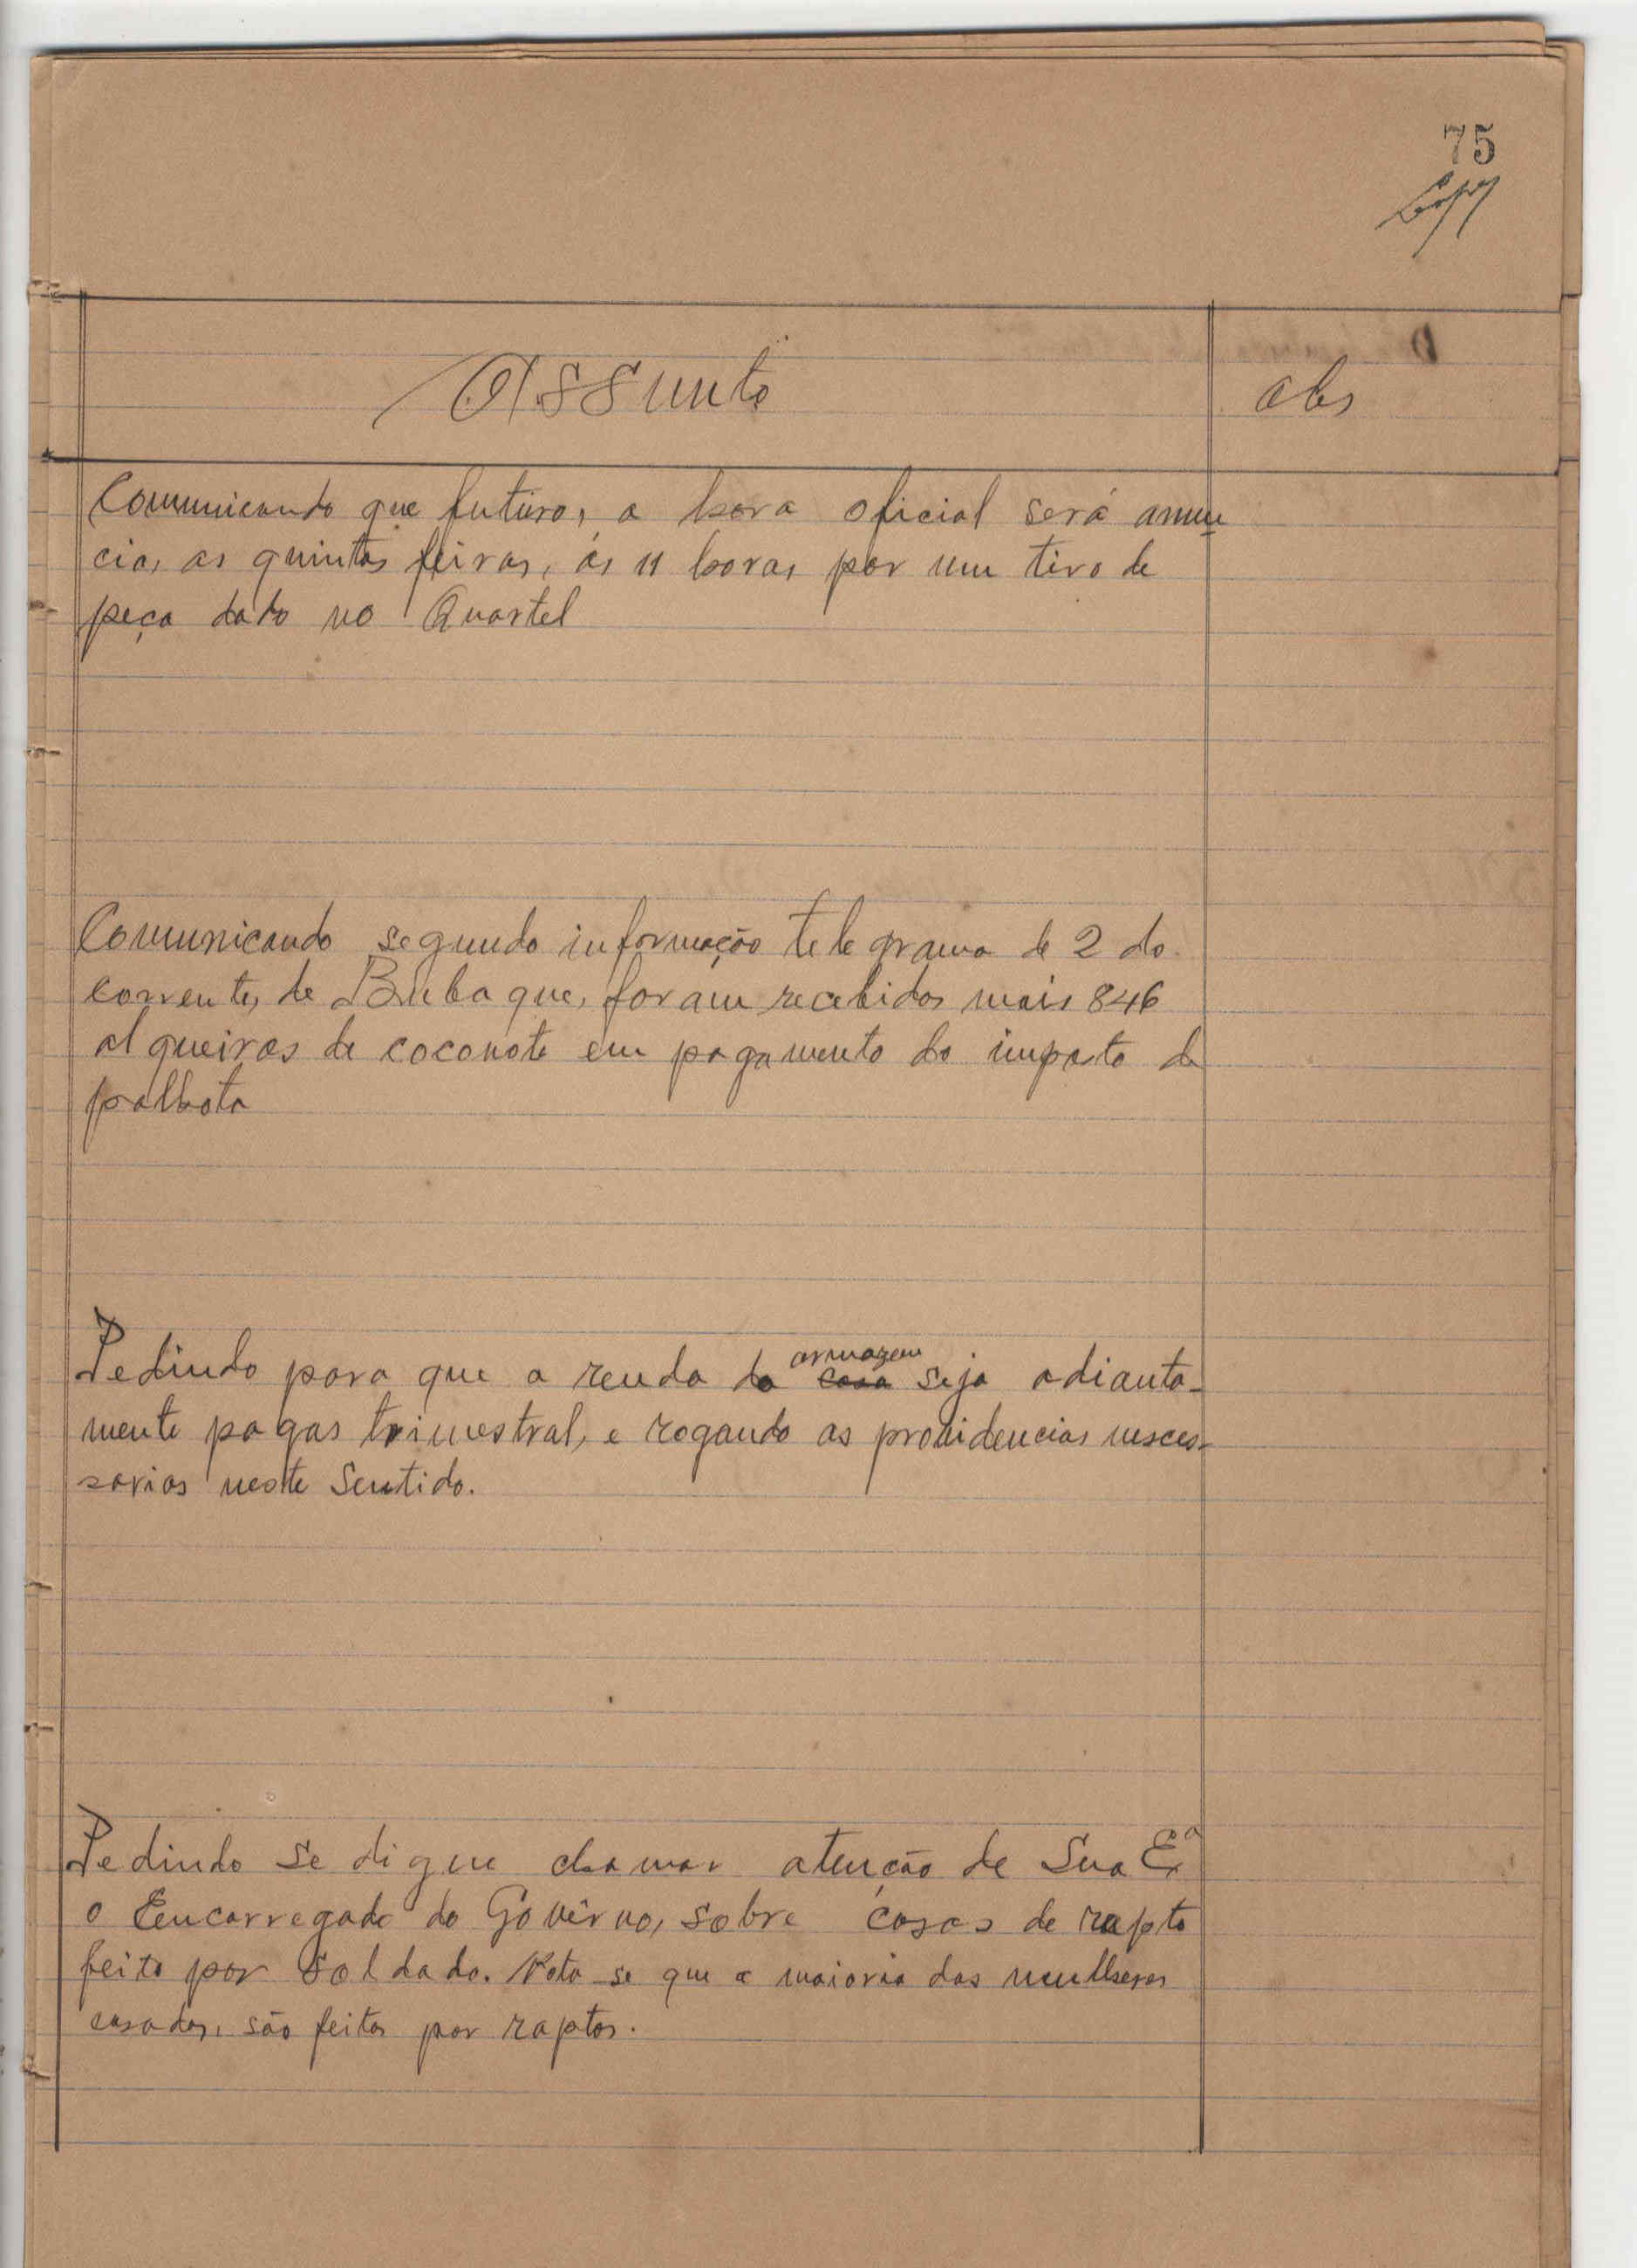 75
Assunto
obs
Comunicando que futuro, a hora oficial será anun
cia, as quintas feiras, ás 11 horas por um tiro de
peça dado no Quartel
Comunicando segundo informação telegrama de 2 do
corrente, de Bubaque, foram recebidos mais 846
alqueiras de coconote em pagamento do imposto de
palhota
armazem
Pedindo para que a renda do casa seja adianta-
mente pagas trimestral, e rogando as providencias
sarias neste sentido.
Pedindo se digne chamar atenção de Sua Exª
o Eencarregado do Govêrno, sobre casos de rapto
feito por soldado. Nota-se que a maioria das mulheres
casadas, são feitas por raptos.